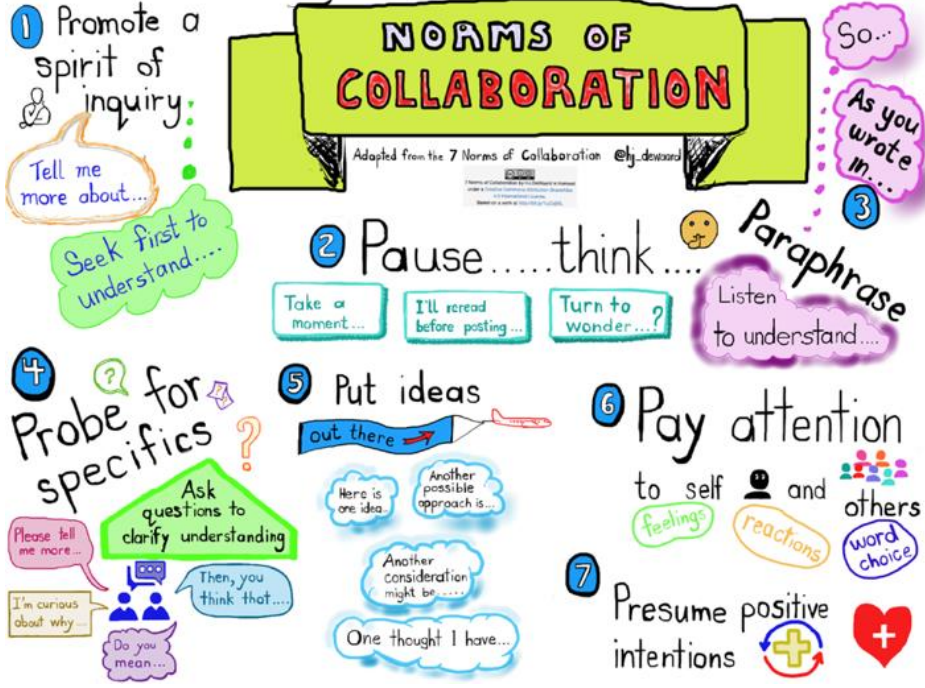 NORMS OF
COLLABORATION
Adapted from the 7 Norms of Collaboration @hj_dewaard
1
Promote a
spirit of
inquiry
Tell me
more about...
Seek first to
understand....
2
Pause.....think....
Take a
moment...
I'll reread
before posting...
Turn to
wonder...?
3
Paraphrase
So...
As you
wrote
in...
Listen
to understand....
4
Probe for
specifics
Ask
questions to
clarify understanding
Please tell
me more...
I'm curious
about why...
Then, you
think that....
Do you
mean...
5
Put ideas
out there
Here is
one idea..
Another
possible
approach is...
Another
consideration
might be.....
One thought I have...
6
Pay attention
to self and
others
feelings
reactions
word
choice
7
Presume positive
intentions